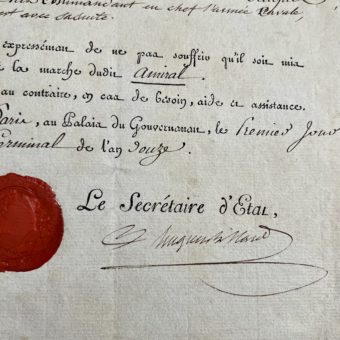 Commandant en chef l'armée Navale,
et avec sa suite.
expressément de ne pas souffrir qu'il soit mis
la marche dudit Amiral
au contraire, en cas de besoin, aide et assistance.
Paris, au Palais du Gouvernement, le Premier Jour
Germinal de l'an douze.
Le Secrétaire d'Etat,
Hugues B. Maret